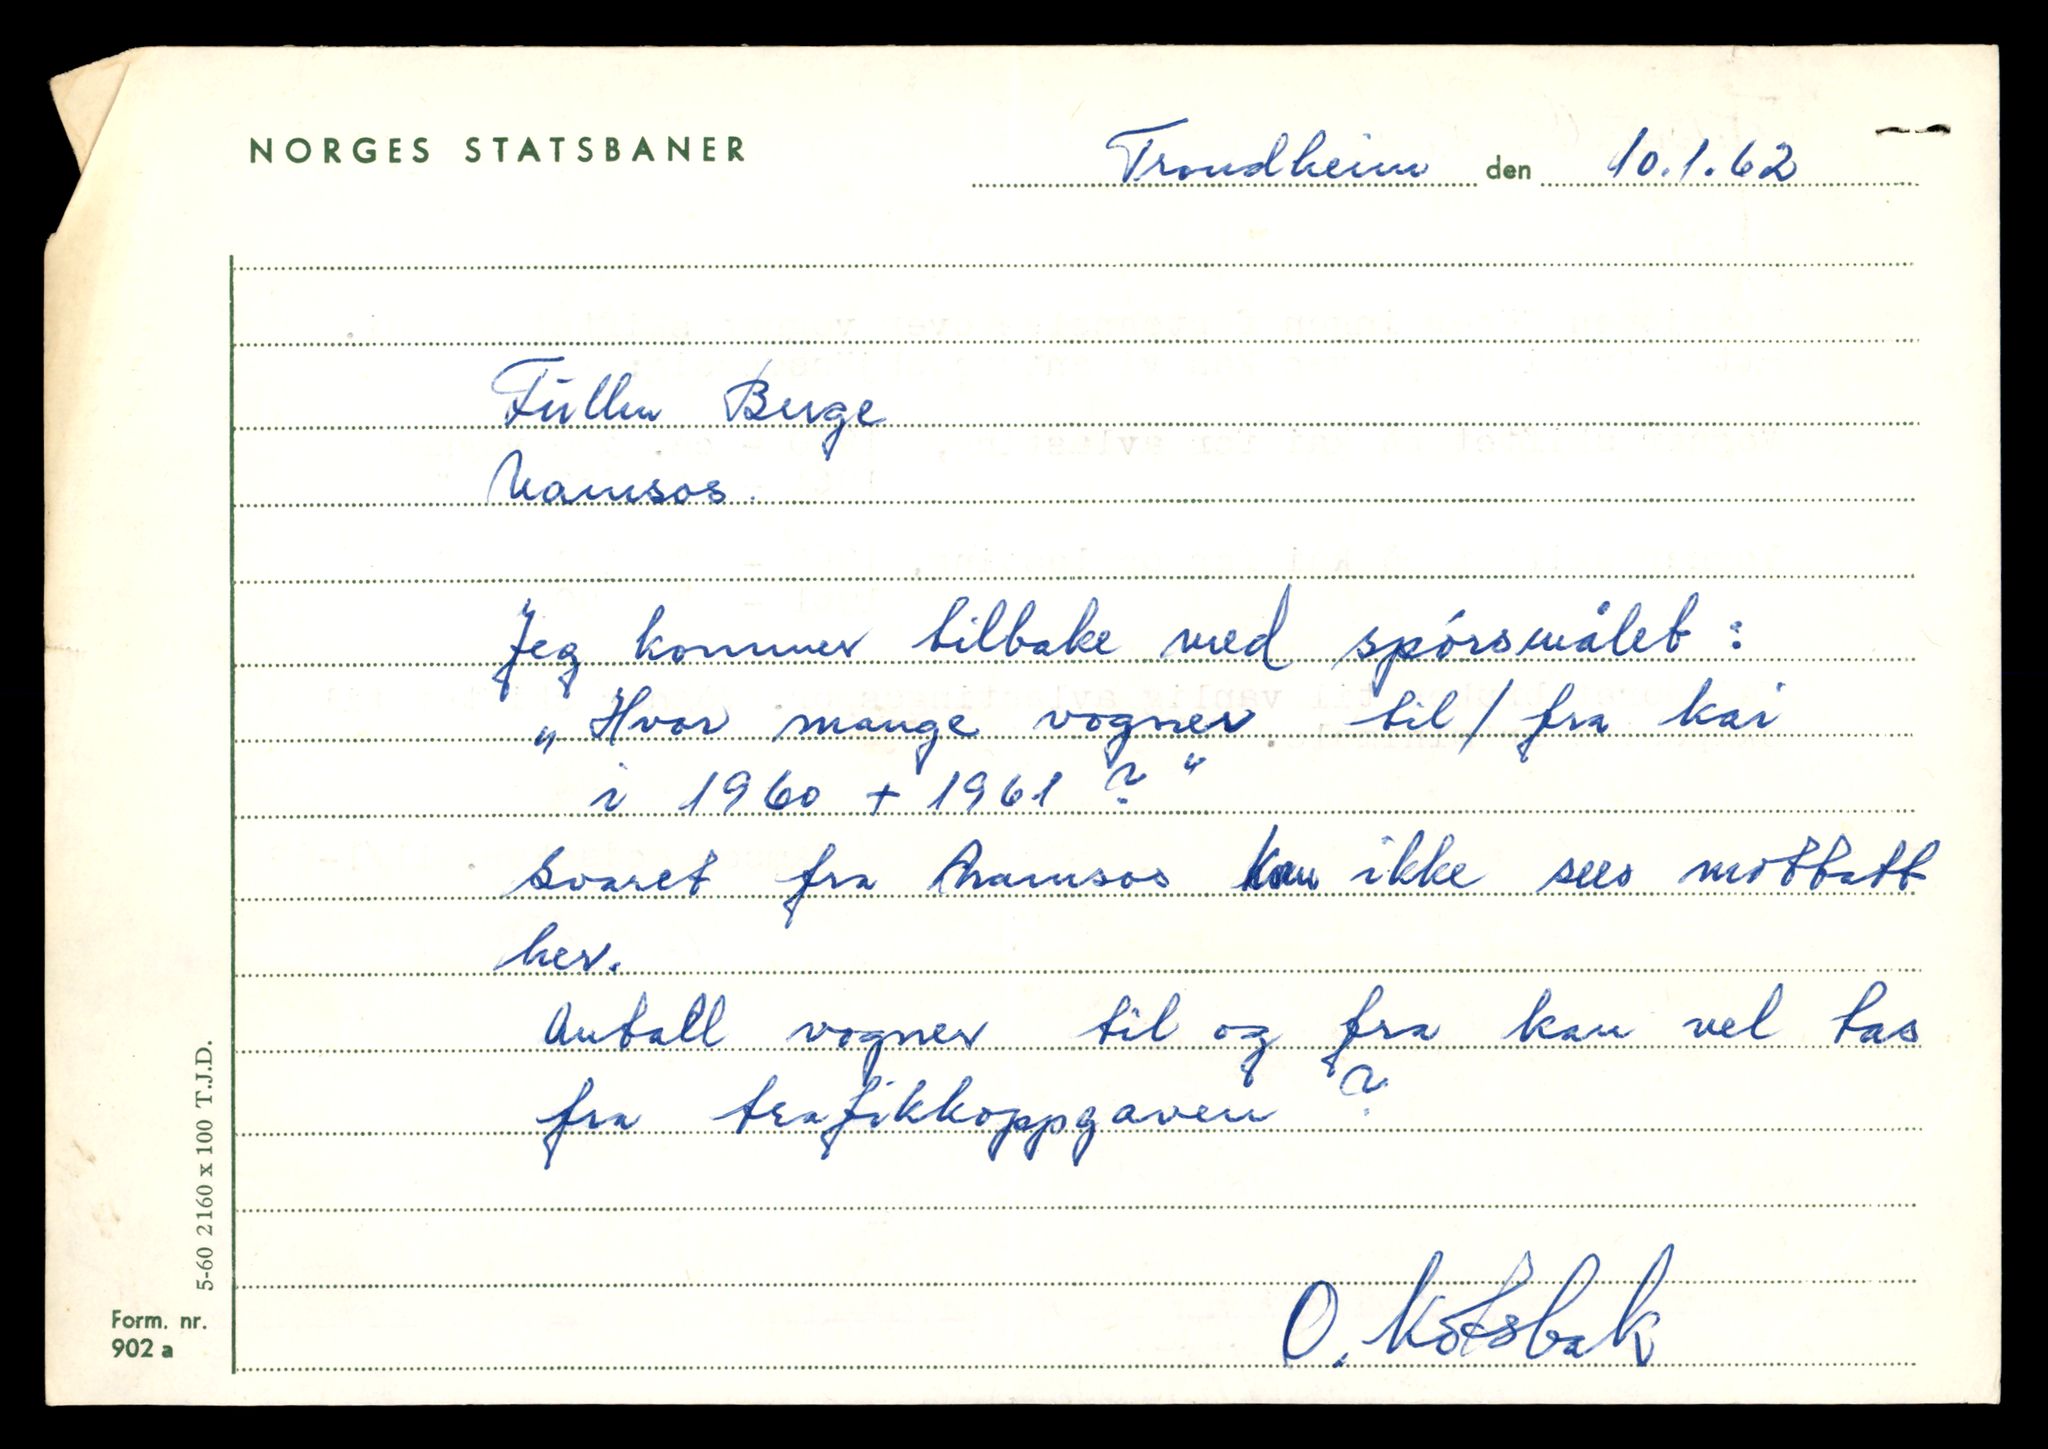 NORGES STATSBANER
Trondheim den 10.1.62
Berge
Namsos.
Jeg kommer tilbake med spórsmålet :
„Hvor mange vogner til / fra kai
i 1960 + 1961 ?“
Svaret fra Namsos kan ikke sees mottatt
her.
Antall vogner til og fra kan vel tas
fra trafikkoppgaven ?
O. Kotsbak
5-60 2160 x 100 T.J.D.
Form. nr.
902 a